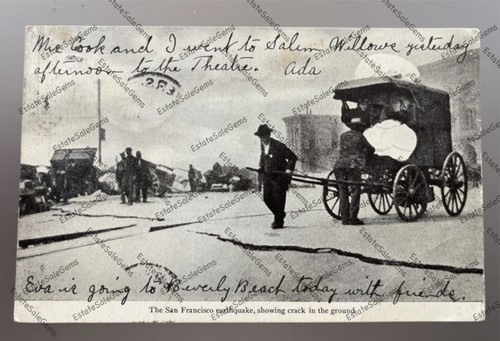 Mrs Cook and I went to Salem Willows yesterday
afternoon to the Theatre. Ada
Eva is going to Beverly Beach today with friends.
The San Francisco earthquake, showing crack in the ground
EstateSaleGems